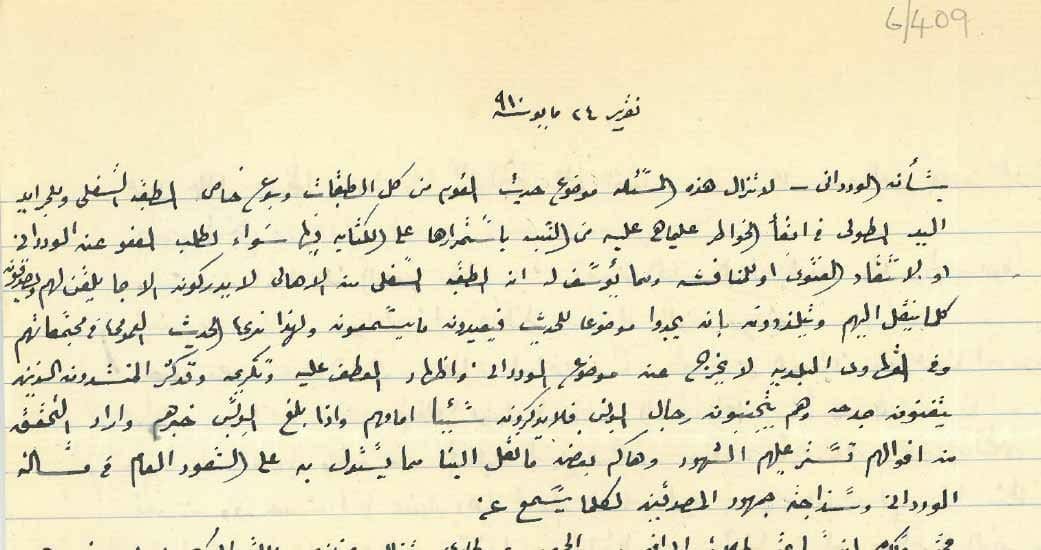 6/409
تقرير ٢٤ مايو سنة ٩١٠
بشأن الوردانى - لا تزال هذه المسئلة موضوع حديث القوم من كل الطبقات وبنوع خاص الطبقة السفلى وللجرايد
اليد الطولى فى اتقاء الخواطر على ما هى عليه من التهيج باستمرارها على الكتابة فيها سواء لطلب العفو عن الوردانى
او لانتقاد الفتوى او للمناقشة ومما يؤسف له ان الطبقة السفلى من الاهالى لا يدركون الا ما يلقن لهم ويصدقون
كلما ينقل اليهم ويتلذذون بان يجدوا موضوعا للحديث فيعيدون ما يستمعون ولهذا نرى الحديث العمومى فى مجتمعاتهم
وفى القهاوى البلدية لا يخرج عن موضوع الوردانى واظهار العطف عليه وتكريمه وقد كثر المنشدون الذين
يتغنون بمدحه وهم يتجنبون رجال البوليس فلا يذكرون شيئا امامهم واذا بلغ البوليس خبرهم واراد التحقق
من اقوالهم تستر عليهم الشهود وهاكم بعض ما نقل الينا مما يستدل به على الشعور العام فى مسألة
الوردانى وسذاجة جمهور المصدقين لكلما يسمع عنه